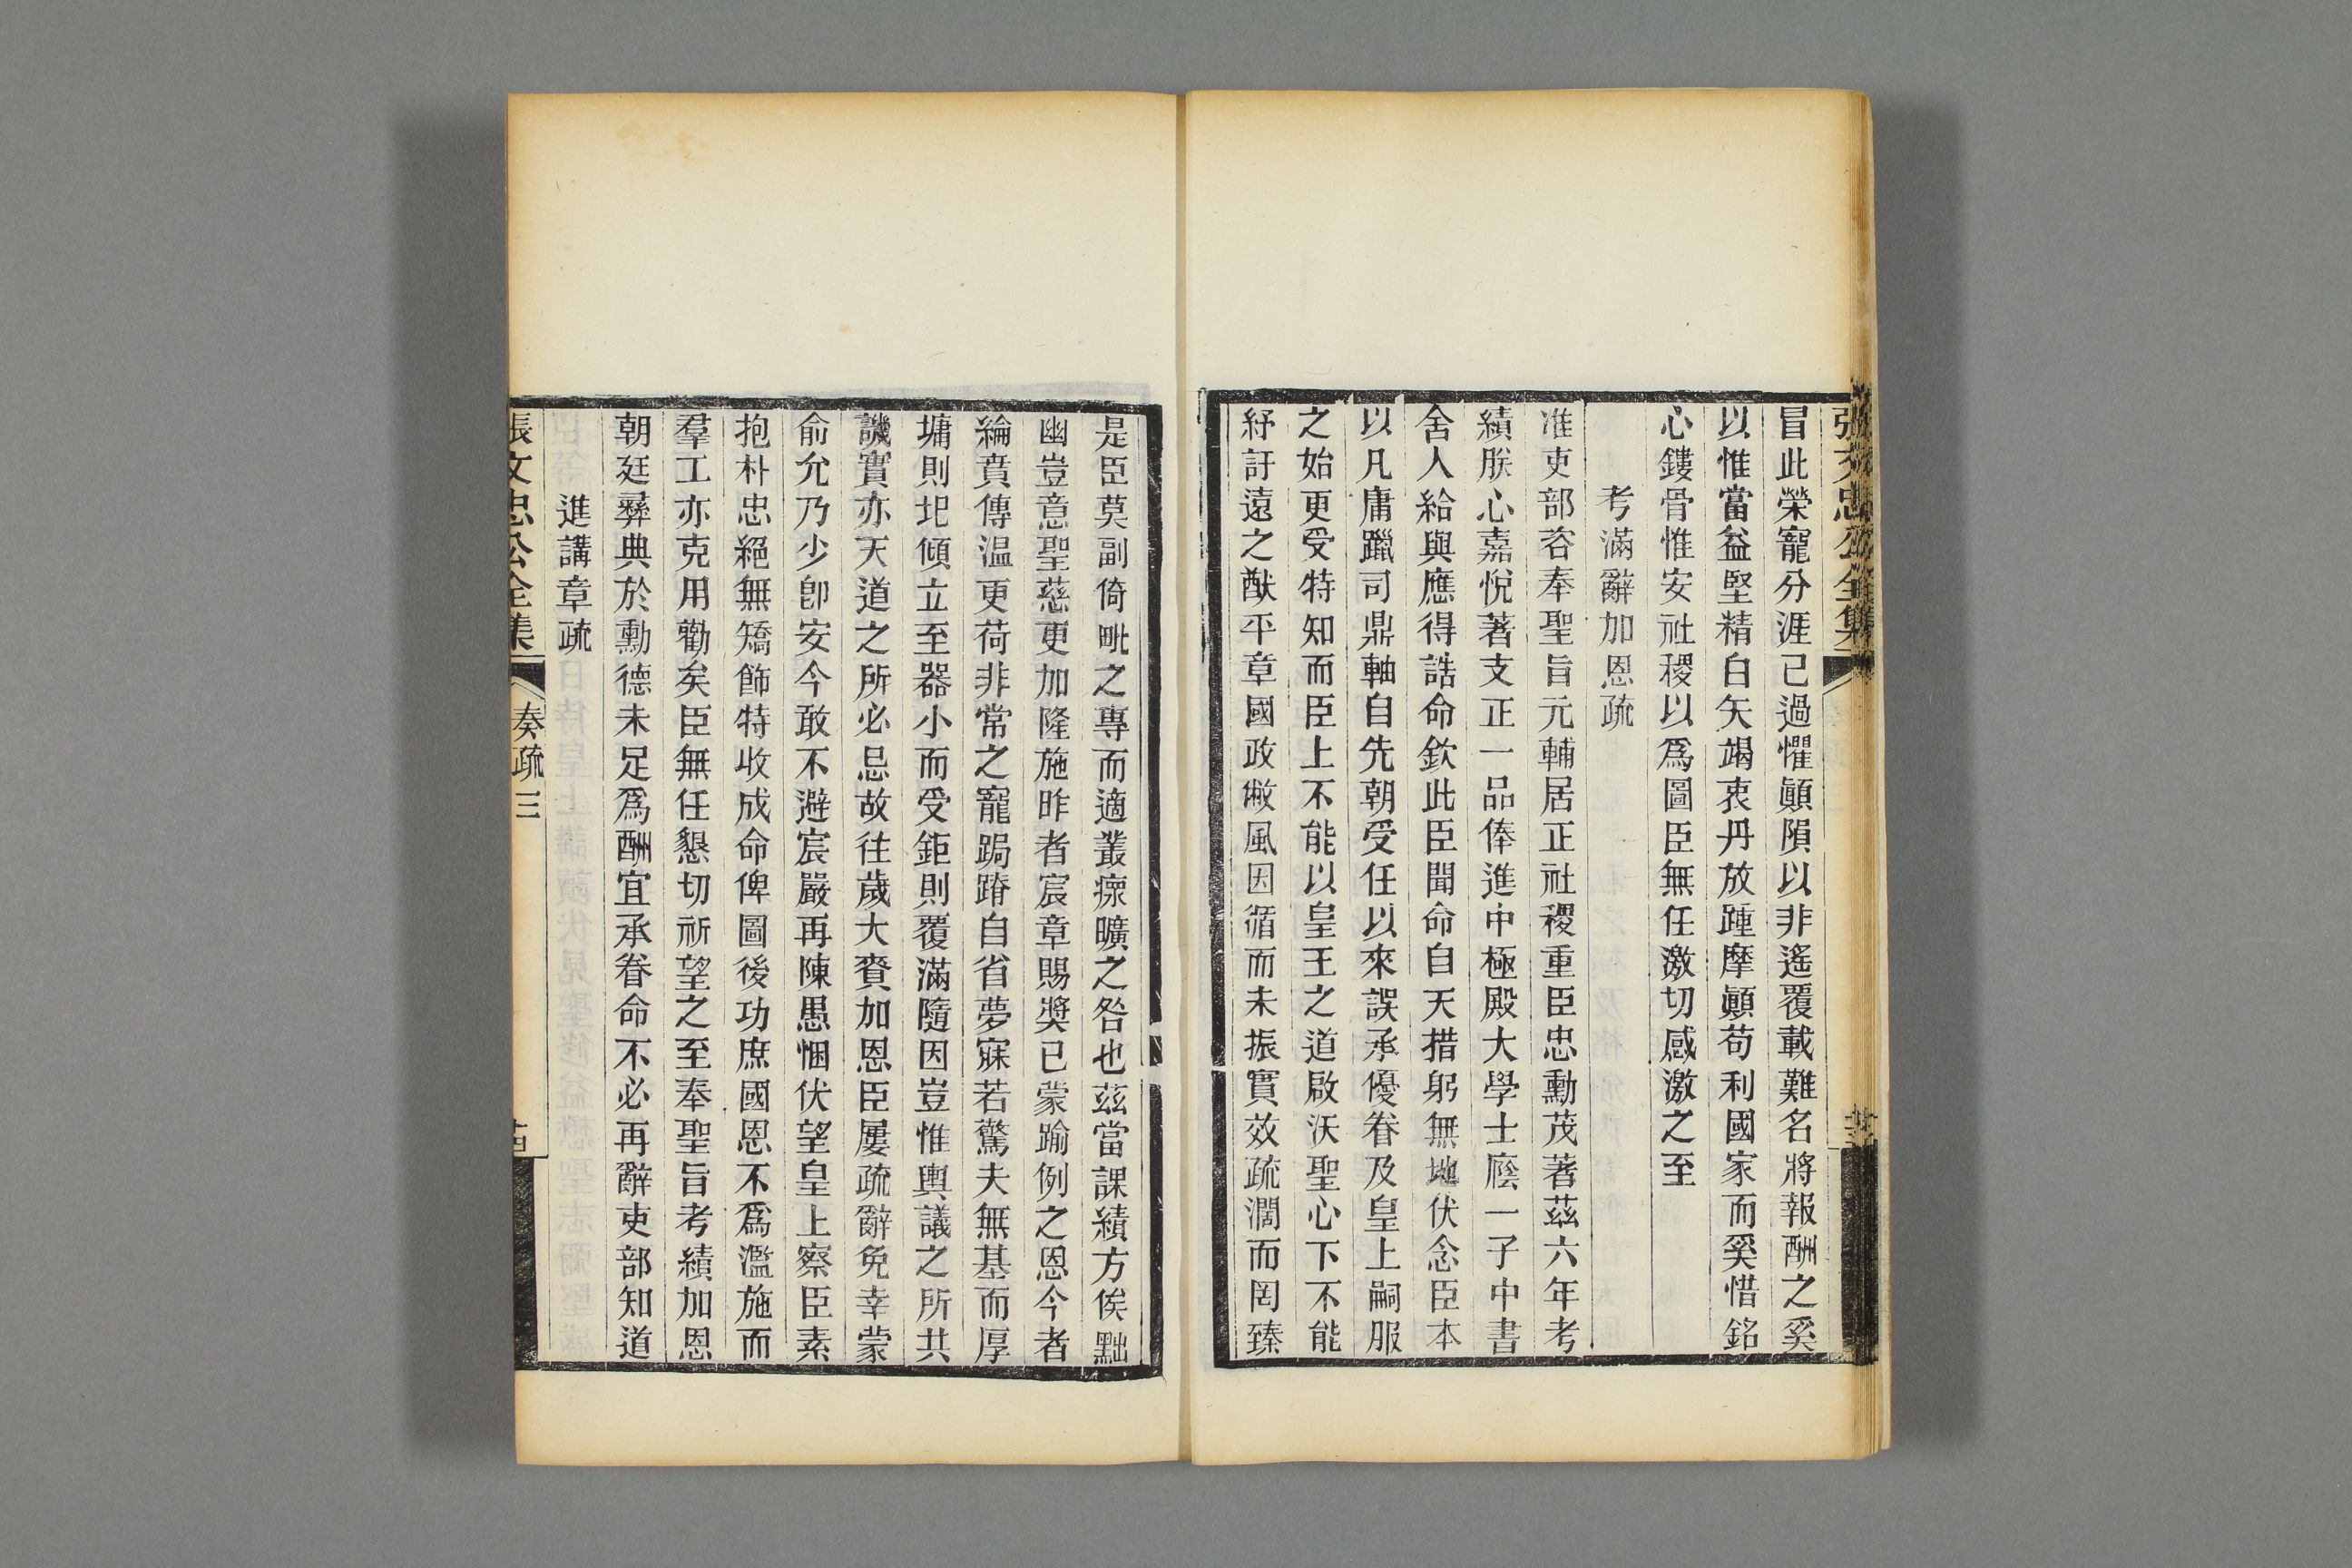 張文忠公全集
冒此榮寵分涯已過懼顛隕以非遙覆載難名將報酬之奚
以惟當益堅精白矢竭衷丹放踵摩顛苟利國家而奚惜銘
心鏤骨惟安社稷以爲圖臣無任激切感激之至
考滿辭加恩疏
准吏部咨奉聖旨元輔居正社稷重臣忠勳茂著茲六年考
績朕心嘉悅著支正一品俸進中極殿大學士廕一子中書
舍人給與應得誥命欽此臣聞命自天措躬無地伏念臣本
以凡庸躐司鼎軸自先朝受任以來誤承優眷及皇上嗣服
之始更受特知而臣上不能以皇王之道啟沃聖心下不能
紓訏遠之猷平章國政敝風因循而未振實效疏濶而罔臻
是臣莫副倚毗之專而適叢瘝曠之咎也茲當課績方俟黜
幽豈意聖慈更加隆施昨者宸章賜獎已蒙踰例之恩今者
綸賁傳温更荷非常之寵跼蹐自省夢寐若驚夫無基而厚
墉則圯傾立至器小而受鉅則覆滿隨因豈惟輿議之所共
譏實亦天道之所必忌故往歲大賚加恩臣屢疏辭免幸蒙
俞允乃少卽安今敢不避宸嚴再陳愚悃伏望皇上察臣素
抱朴忠絕無矯飾特收成命俾圖後功庶國恩不爲濫施而
羣工亦克用勸矣臣無任懇切祈望之至奉聖旨考績加恩
朝廷彝典於勳德未足爲酬宜承眷命不必再辭吏部知道
進講章疏
張文忠公全集
奏疏三